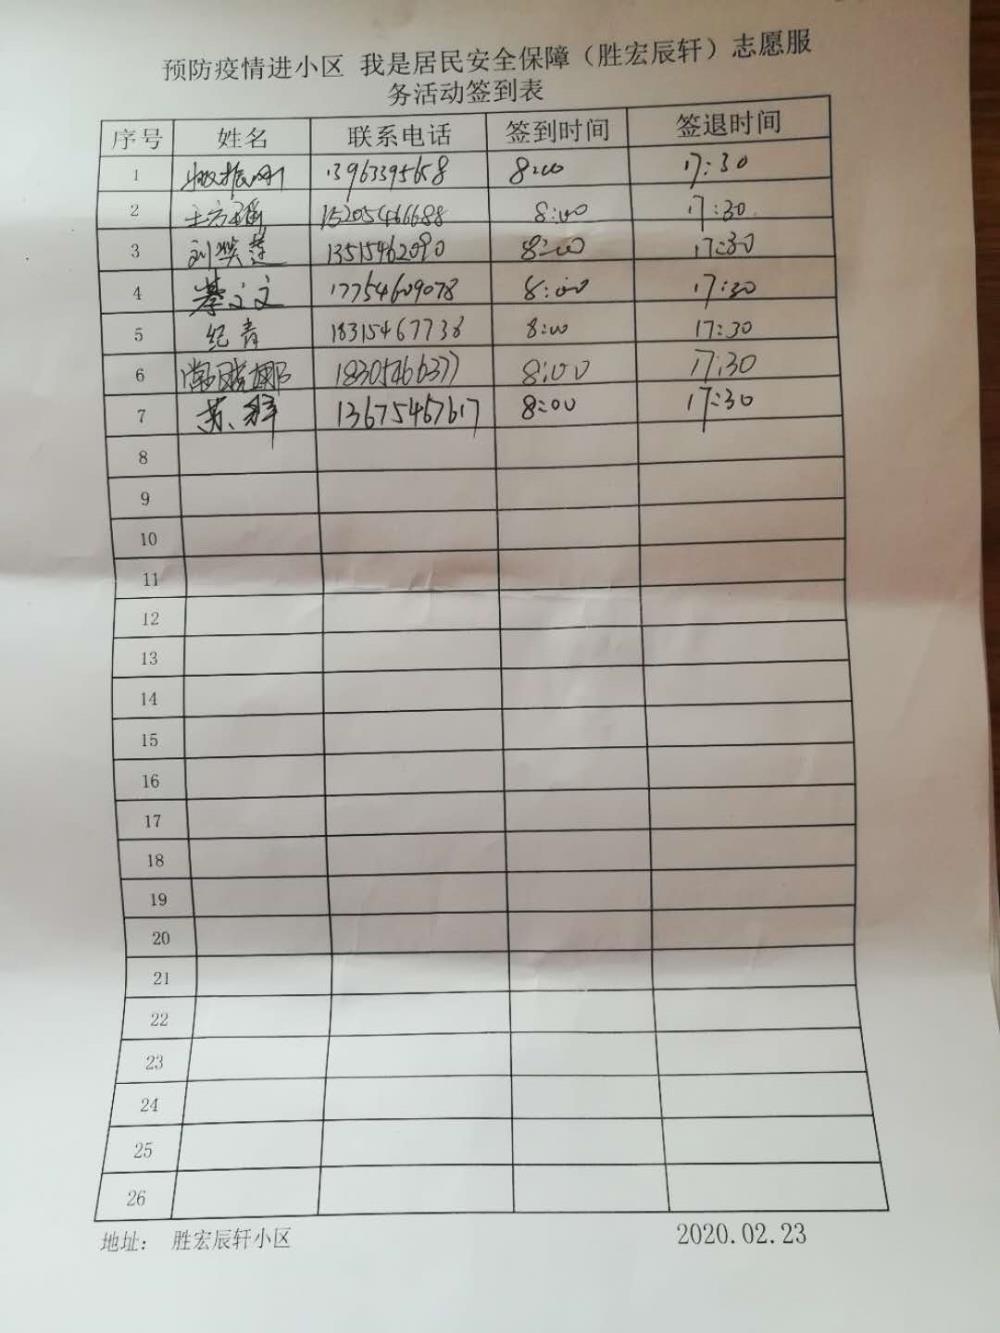 预防疫情进小区 我是居民安全保障（胜宏辰轩）志愿服
务活动签到表
序号 姓名 联系电话 签到时间 签退时间
1 13963395658 8:00 17:30
2 15205466688 8:00 17:30
3 刘焕莲 13515462090 8:00 17:30
4 綦文文 17754609078 8:00 17:30
5 纪青 18315467738 8:00 17:30
6 常晓娜 18305466377 8:00 17:30
7 苏群 13675467617 8:00 17:30
8
9
10
11
12
13
14
15
16
17
18
19
20
21
22
23
24
25
26
地址： 胜宏辰轩小区 2020.02.23